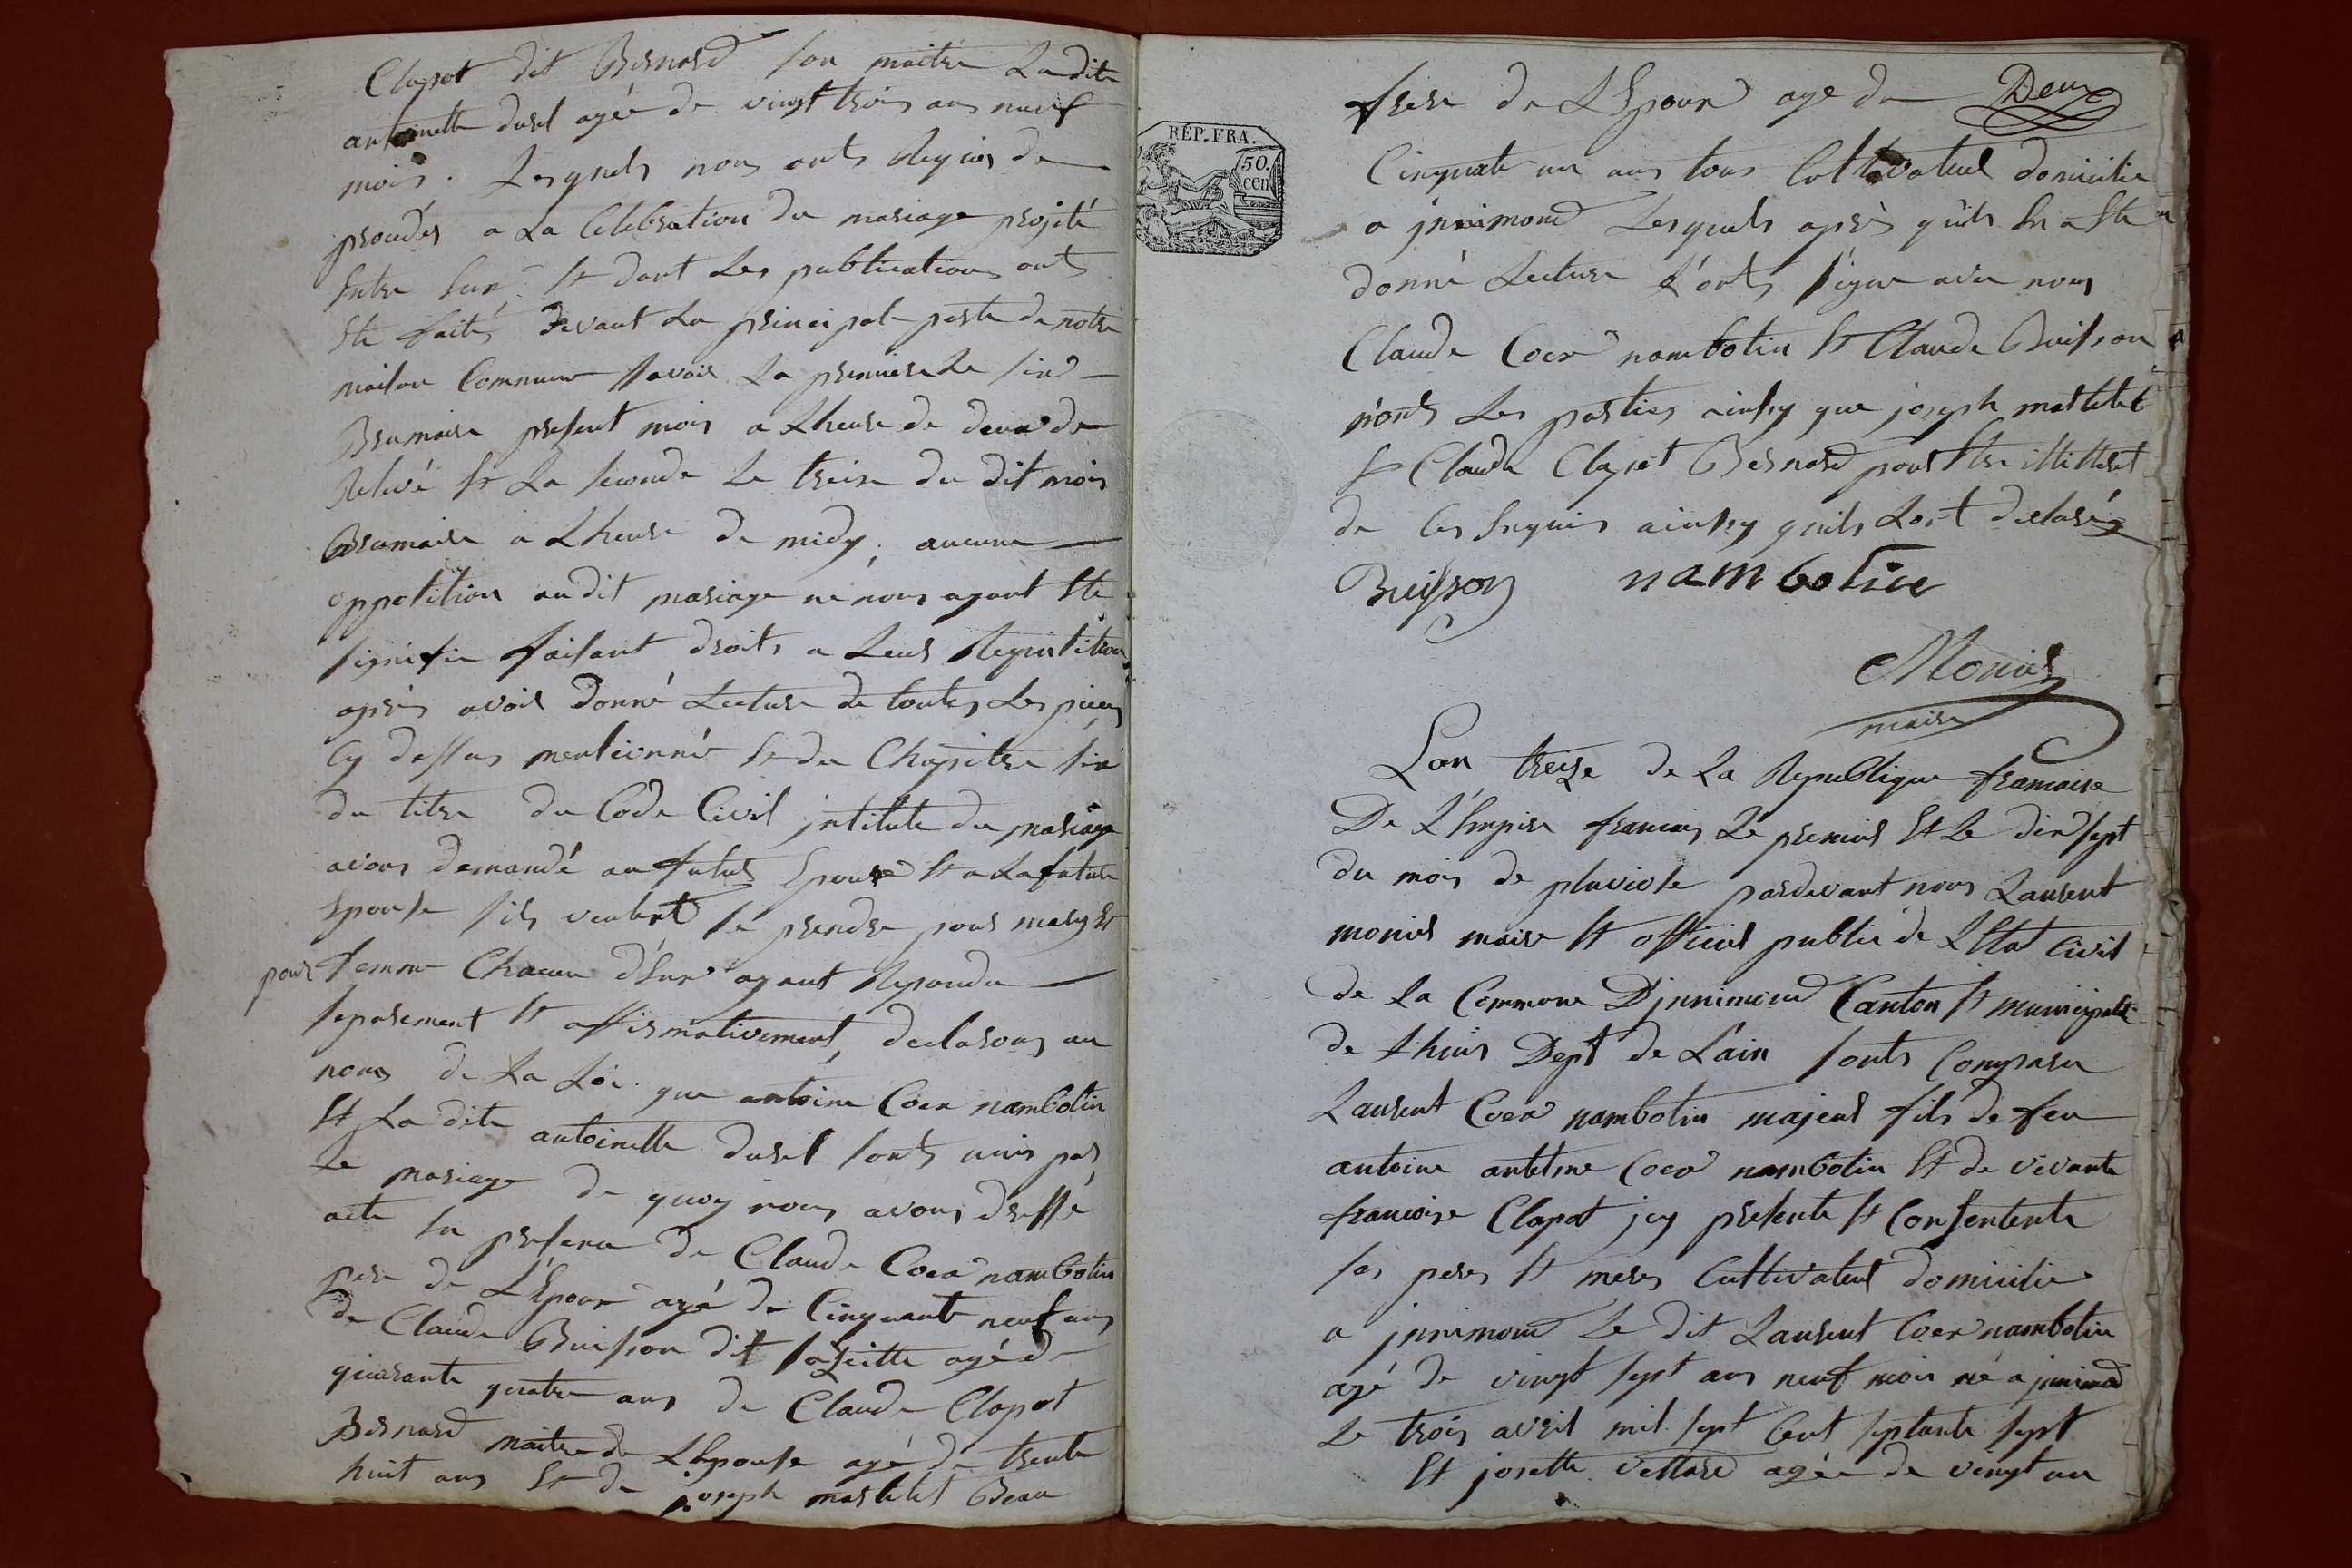 Clapot dit Bernard son maitre Ladite
antoinette durel agée de vingt trois ans neuf
mois. Lesquels nous onts Requis de
proceder a La Celebration du mariage projeté
Entre Eux Et dont Les publications onts
Ete faites Devant La principale porte de notre
maison Commune Savoir La premiere Le six
Brumaire present mois a Lheure de deux de
Relevé Et La seconde Le treize du dit mois
Brumaire a Lheure de midy; aucune
oppotition audit mariage ne nous ayant Ete
signifie faisant droits a Leur Requitition
après avoir Donné Lecture de toutes Les pieces
Cy dessus mentionné Et du Chapitre six
du titre du Code Civil jntitule du mariage
avons demandé au futur Epoux Et a La future
Epouse sils veulent se prendre pour mary Et
pour femme Chacun d'Eux ayant Repondu
separement Et affirmativement, declarons au
nom de La Loi que antoine Coex nambotin
Et La dite antoinette durel sonts unis par
Le mariage de quoy nous avons dressé
acte En presence de Claude Coex nambotin
pere de L'Epoux agé de Cinquante neuf ans
de Claude Buisson dit agé de
quarante quatre ans de Claude Clapot
Bernard maitre de LEpouse agé de trente
huit ans Et de joseph martelet Beau
REP. FRA.
50.
cen
frere de LEpoux age de Deux
Cinquate un ans tous Cultivateur domicilie
a jnnimond Lesquels après quils En a Ete
donné Lecture L'onts signe avec nous
Claude Coex nambotin Et Claude Buisson
n'onts Les parties ainsy que joseph martelet
Et Claude Clapot Bernard pour Etre illitteret
de Ces Enquis ainsy quils Lont declaré
Buisson nambotin
Monier
maire
Lan treize de La Republique francaise
De L'Empire francais Le premier Et Le dix sept
du mois de pluviose pardevant nous Laurent
monier maire Et officier public de LEtat Civil
de La Commune D'jnnimond Canton Et municipalite
de Lhuis Dept de Lain sonts Comparu
Laurent Coex nambotin majeur fils de feu
antoine antelme Coex nambotin Et de vivante
francoise Clapot jcy presente Et Consentente
ses peres Et meres Cultivateur domicilie
a jnnimond Le dit Laurent Coex nambotin
agé de vingt sept ans neuf mois né a jnnimond
Le trois avril mil sept Cent septante sept
Et josette Vettard agée de vingt un